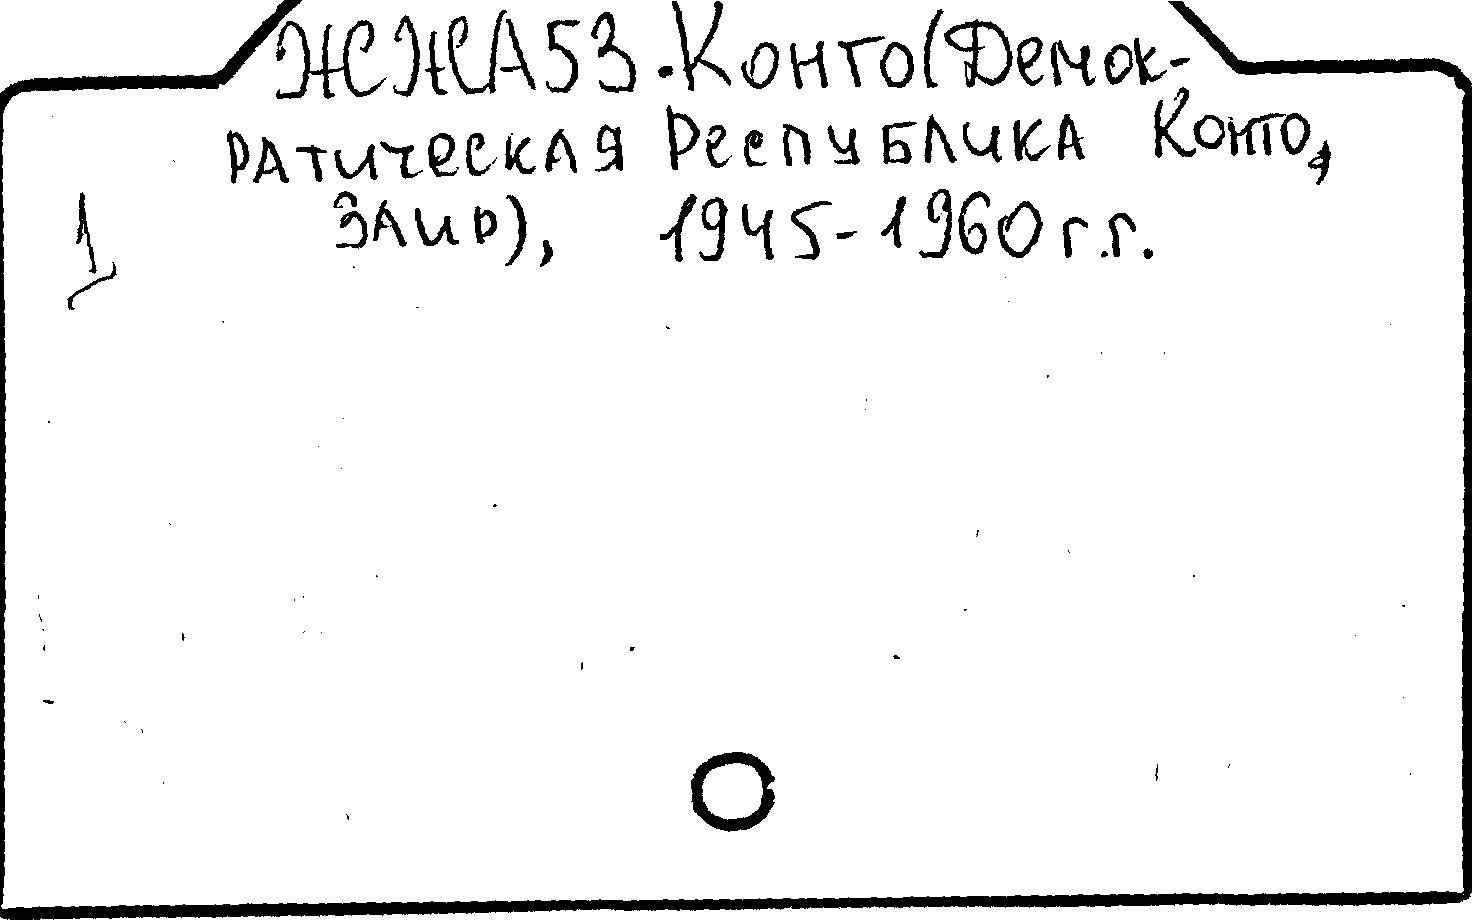 ЖЖА53.Конго(Демок-
ратическая Республика Конго,
Заир), 1945-1960 г.г.
1